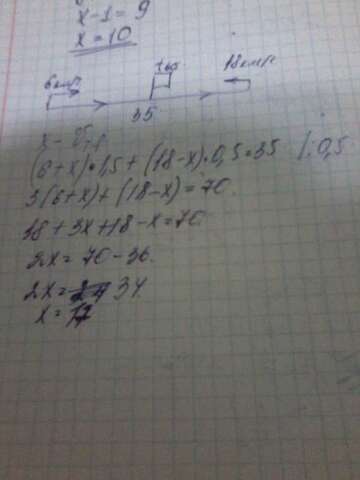 x-1=9
x=10
6 км/ч
18 км/ч
35
(6+x)·1,5+(18-x)·0,5=35 |:0,5
3(6+x)+(18-x)=70
18+3x+18-x=70
2x=70-36
2x=34
x=17